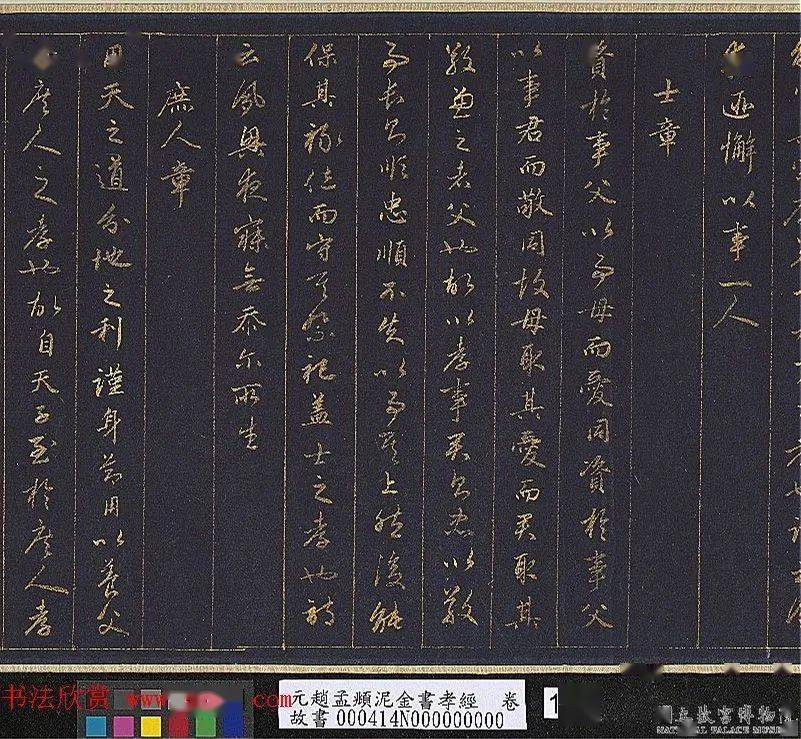 匪懈以事一人
士章
資於事父以事母而愛同資於事父
以事君而敬同故母取其愛而君取其
敬兼之者父也故以孝事君則忠以敬
事長則順忠順不失以事其上然後能
保其祿位而守其祭祀蓋士之孝也詩
云夙興夜寐無忝尔所生
庶人章
用天之道分地之利謹身節用以養父
庶人之孝也故自天子至於庶人孝
书法欣赏 www. .com
元趙孟頫泥金書孝經 卷
故書000414N000000000
1
國立故宮博物院
NATIONAL PALACE MUSEUM